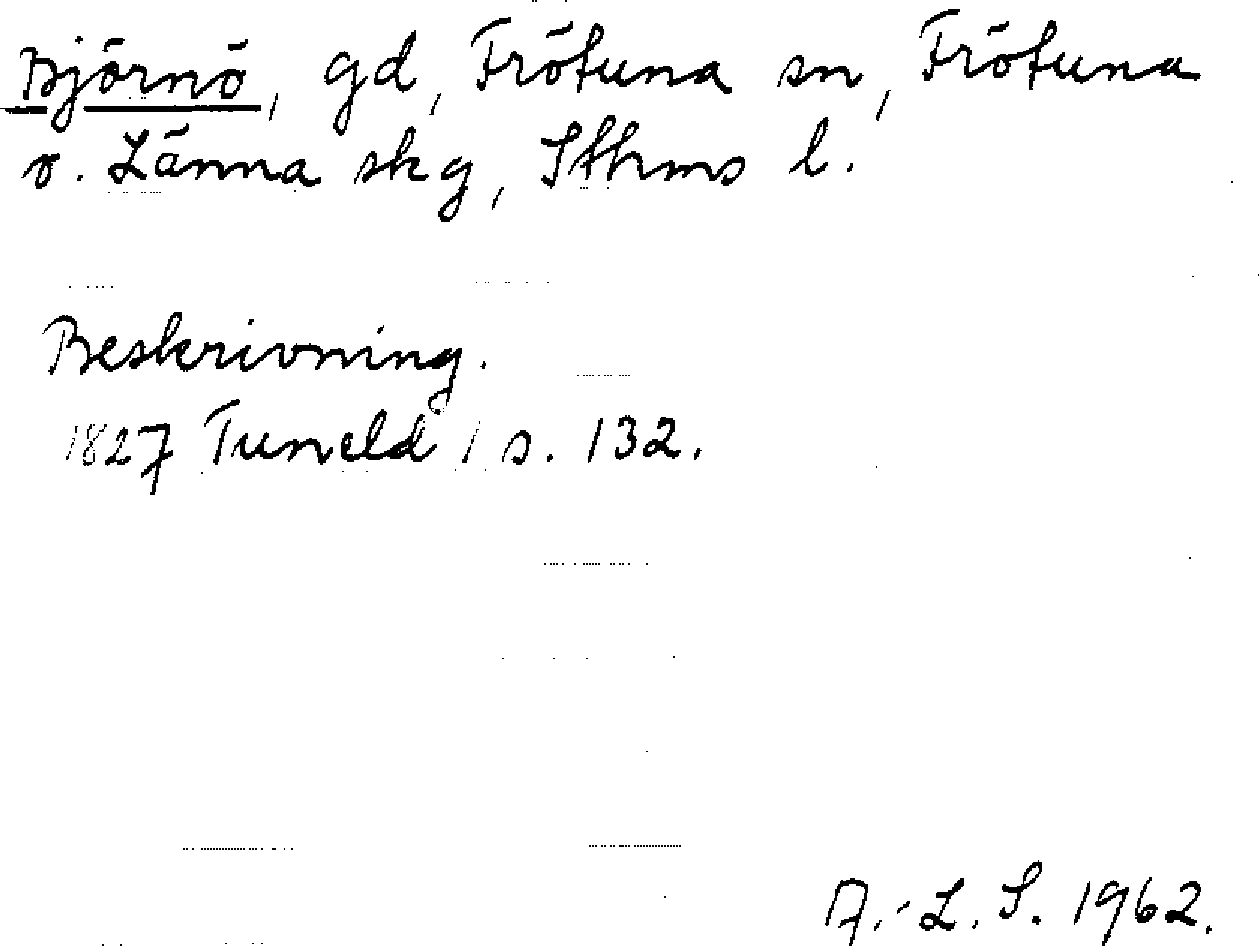 Björnö, gd, Frötuna sn, Frötuna
o. Länna skg, Sthms l.
Beskrivning.
1827 Tuneld 1 s. 132.
A.-L. S. 1962.